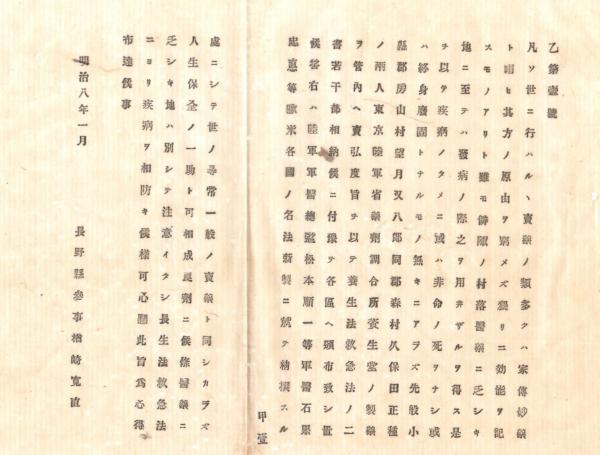 乙第壹號
凡ソ世ニ行ハルヽ賣藥ノ類多クハ家傳妙藥
ト唱ヒ其方ノ原由ヲ窮メズ濫リニ効能ヲ記
スモノアリト雖モ僻陬ノ村落醫藥ニ乏シキ
地ニ至テハ發病ノ際之ヲ用井ザルヲ得ス是
ヲ以テ疾病ノタメニ或ハ非命ノ死ヲナシ或
ハ終身廢痼トナルモノ無キニアラズ先般小
縣郡房山村望月又八郎同郡森村久保田正種
ノ兩人東京陸軍省藥劑調合所資生堂ノ製藥
ヲ管內ヘ賣弘度旨ヲ以テ養生法救急法ノ二
書若干部相納候ニ付猥テ各區ヘ頒布致シ置
候答右ハ陸軍軍醫總監松本順一等軍醫石黑
忠悳等歐米各國ノ名法新製ニ就テ精撰スル
甲壹
處ニシテ世ノ尋常一般ノ賣藥ト同シカラズ
人生保全ノ一助ト可相成良劑ニ候條醫藥ニ
乏シキ地ハ別シテ注意イタシ長生法救急法
ニヨリ疾病ヲ相防キ候樣可心懸此旨爲心得
布達候事
明治八年一月
長野縣參事楢崎寬直